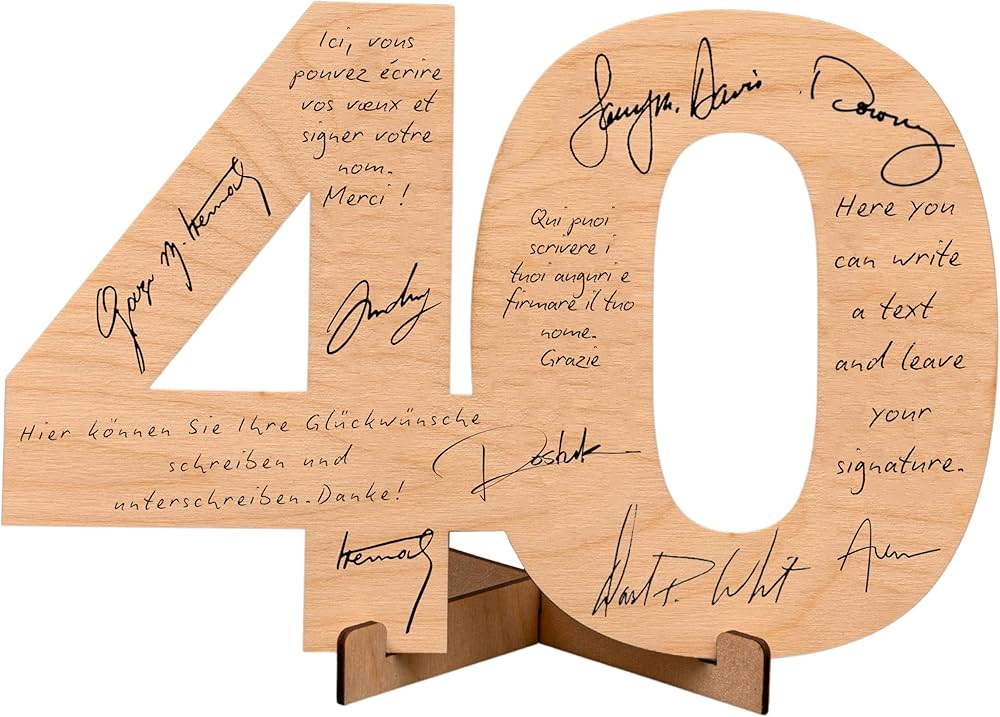 Ici, vous
pouvez écrire
vos vœux et
signer votre
nom.
Merci !
Hier können Sie Ihre Glückwünsche
schreiben und
unterschreiben. Danke!
Davis
Qui puoi
scrivere i
tuoi auguri e
firmare il tuo
nome.
Grazie
Here you
can write
a text
and leave
your
signature.